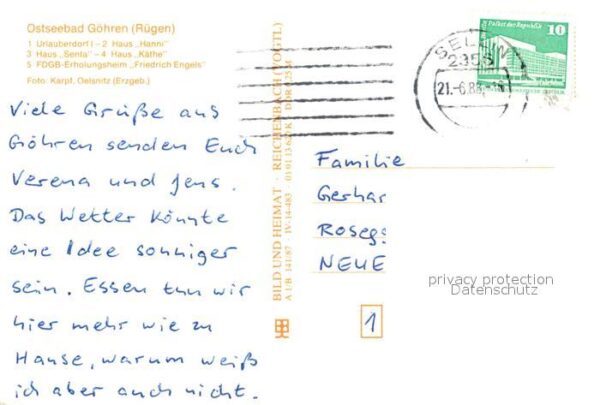 Ostseebad Göhren (Rügen)
1 Urlauberdorf I – 2 Haus „Hanni"
3 Haus „Senta" – 4 Haus „Käthe"
5 FDGB-Erholungsheim „Friedrich Engels"
Foto: Karpf, Oelsnitz (Erzgeb.)
Viele Grüße aus
Göhren senden Euch
Verena und Jens.
Das Wetter könnte
eine Idee sonniger
sein. Essen tun wir
hier mehr wie zu
Hause, warum weiß
ich aber auch nicht.
BILD UND HEIMAT · REICHENBACH (VOGTL)
A 1/B 141/87 IV-14-483
SELLIN
2356
21.-6.88
Palast der Republik
10
Familie
Gerhar
Roseg
NEUE
1
privacy protection
Datenschutz